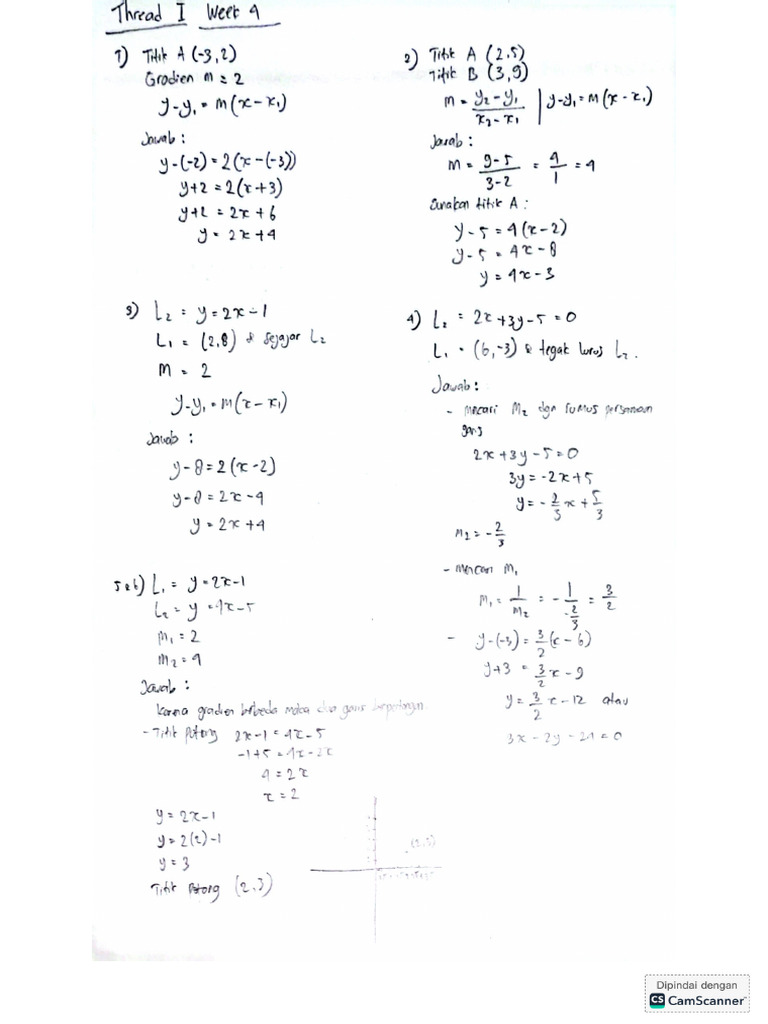 Thread I Week 4
1) Titik A (-3,2)
Gradien m = 2
y-y₁ = m(x-x₁)
Jawab :
y-(-2) = 2(x-(-3))
y+2 = 2(x+3)
y+2 = 2x+6
y = 2x+4
2) Titik A (2,5)
Titik B (3,9)
m = y₂-y₁ / x₂-x₁ | y-y₁ = m(x-x₁)
Jawab :
m = 9-5 / 3-2 = 4/1 = 4
Gunakan titik A :
y-5 = 4(x-2)
y-5 = 4x-8
y = 4x-3
3) L₂ = y = 2x-1
L₁ = (2,8) & sejajar L₂
m = 2
y-y₁ = m(x-x₁)
Jawab :
y-8 = 2(x-2)
y-8 = 2x-4
y = 2x+4
4) L₂ = 2x+3y-5=0
L₁ = (6,-3) & tegak lurus L₂.
Jawab :
- mencari M₂ dgn rumus persamaan
garis
2x+3y-5=0
3y = -2x+5
y = -2/3 x + 5/3
m₂ = -2/3
- mencari M₁
M₁ = 1/M₂ = - 1/(-2/3) = 3/2
- y-(-3) = 3/2 (x-6)
y+3 = 3/2 x - 9
y = 3/2 x - 12 atau
3x - 2y - 24 = 0
5&6) L₁ = y = 2x-1
L₂ = y = 4x-5
m₁ = 2
m₂ = 4
Jawab :
karena gradien berbeda maka dua garis berpotongan.
- Titik Potong 2x-1 = 4x-5
-1+5 = 4x-2x
4 = 2x
x = 2
y = 2x-1
y = 2(2)-1
y = 3
Titik Potong (2,3)
(2,3)
Dipindai dengan
CS CamScanner